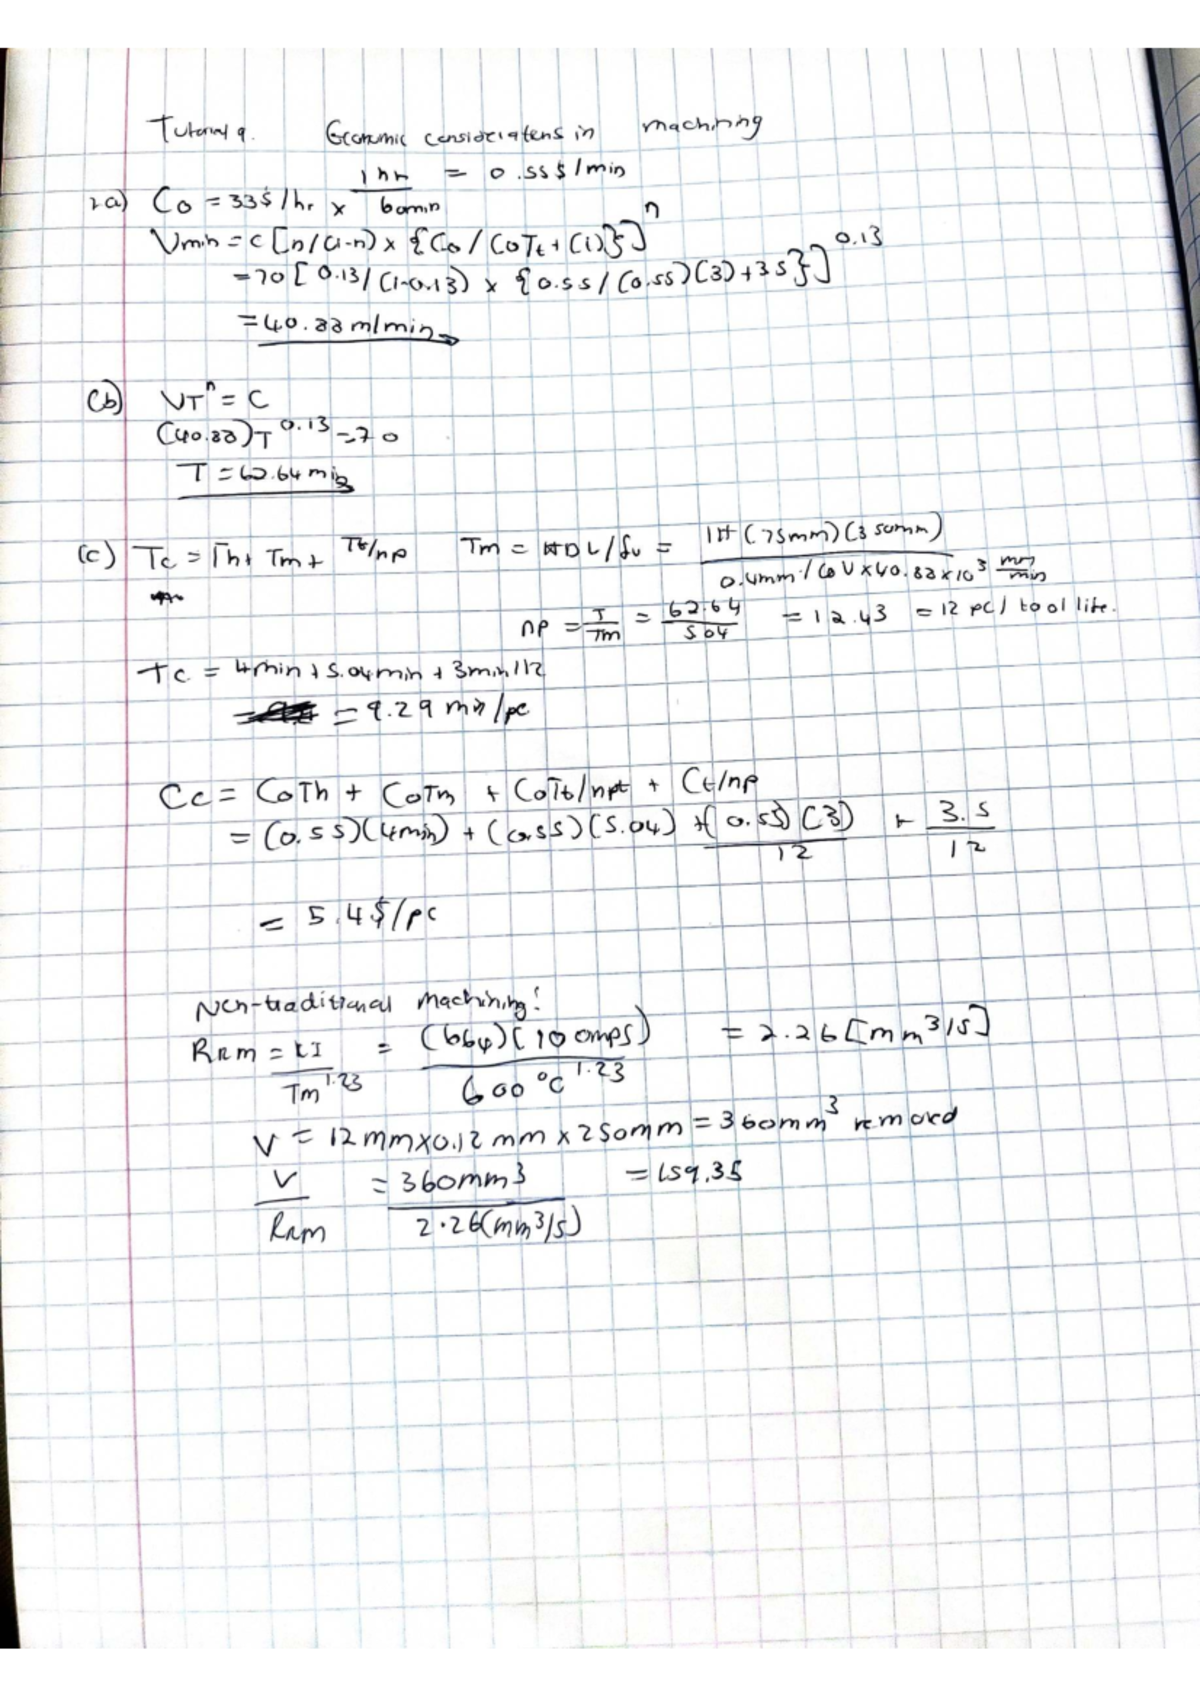 Tutorial 9. Economic considerations in machining
2a) Co = 33$/hr × 1hr/60min = 0.55$/min
Vmin = C [n/(1-n) × {Co/(CoTt + Ct)}]^n
= 70 [0.13/(1-0.13) × {0.55/(0.55)(3)+3.5}]^0.13
= 40.88 m/min
(b) VT^n = C
(40.88)T^0.13 = 70
T = 62.64 min
(c) Tc = Th + Tm + Tt/np Tm = πDL/fv = π(75mm)(350mm) / 0.4mm/rev × 40.88 × 10^3 mm/min
np = T/Tm = 62.64/5.04 = 12.43 = 12 pc/tool life.
Tc = 4min + 5.04min + 3min/12
= 9.29 min/pc
Cc = CoTh + CoTm + CoTt/npt + Ct/np
= (0.55)(4min) + (0.55)(5.04) + (0.55)(3)/12 + 3.5/12
= 5.4$/pc
Non-traditional machining:
RRm = KI/Tm^1.23 = (664)(100mps)/600°C^1.23 = 2.26 [mm^3/s]
V = 12mm×0.12mm×250mm = 360mm^3 removed
V/RRm = 360mm3/2.26(mm^3/s) = 159.35